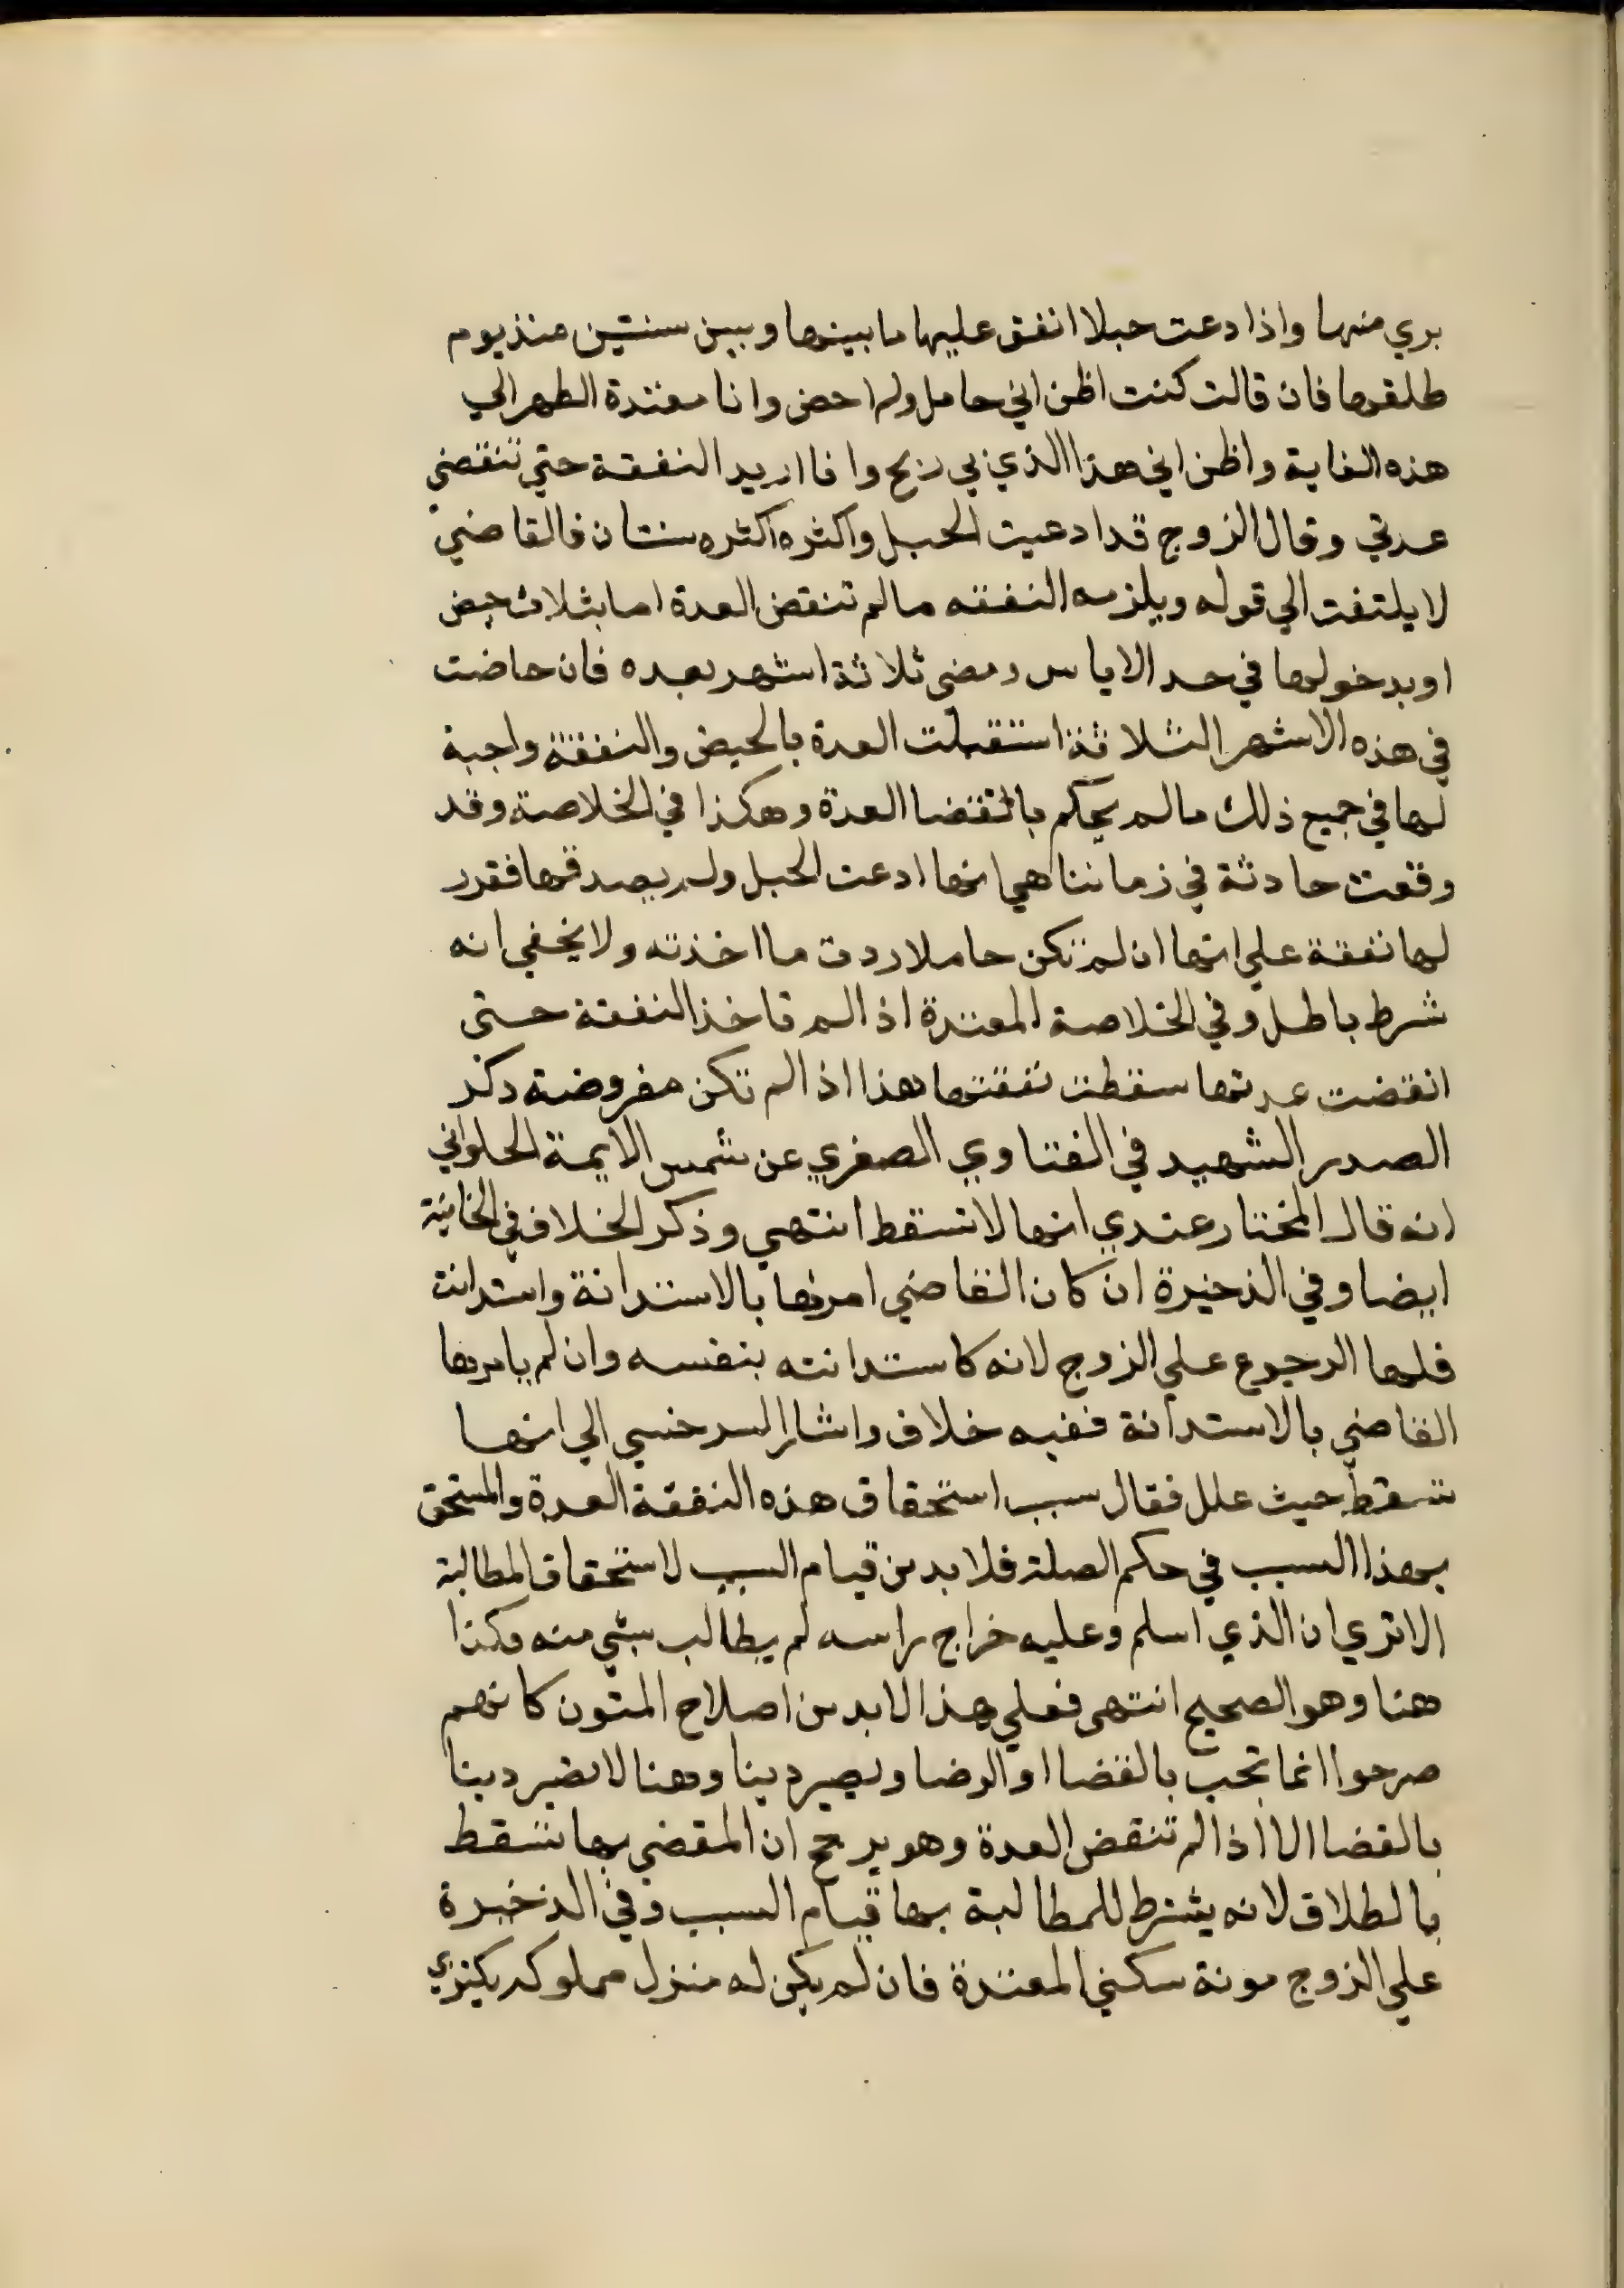 بري منها واذا دعت حبلا انفق عليها ما بينها وبين سنتين منذ يوم
طلقها فان قالت كنت اظن اني حامل ولم احض وانا معتدة الطهر الي
هذه الغاية واظن اني هذا الذي بي ريح وانا اريد النفقة حتي تنقضي
عدتي وقال الزوج قد ادعيت الحبل واكثره اكثره سنتان فالقاضي
لا يلتفت الي قوله ويلزمه النفقه ما لم تنقض العدة اما بثلاث حيض
او بدخولها في حد الاياس ومضي ثلاثة اشهر بعده فان حاضت
في هذه الاشهر الثلاثة استقبلت العدة بالحيض والنفقة واجبة
لها في جميع ذلك ما لم يحكم بانقضا العدة وهكذا في الخلاصة وقد
وقعت حادثة في زماننا هي انها ادعت الحبل ولم يصدقها فقدر
لها نفقة علي انها ان لم تكن حاملا ردت ما اخذته ولا يخفي انه
شرط باطل وفي الخلاصة المعتدة اذا لم تاخذ النفقة حتي
انقضت عدتها سقطت نفقتها هذا اذا لم تكن مفروضة ذكر
الصدر الشهيد في الفتاوي الصغري عن شمس الايمة الحلواني
انه قال المختار عندي انها لا تسقط انتهي وذكر الخلاف في الخانية
ايضا وفي الذخيرة ان كان القاضي امرها بالاستدانة واستدانت
فلها الرجوع علي الزوج لانه كاستدانته بنفسه وان لم يامرها
القاضي بالاستدانة ففيه خلاف واشار السرخسي الي انها
تسقط حيث علل فقال سبب استحقاق هذه النفقة العدة والمستحق
بهذا السبب في حكم الصلة فلا بد من قيام السبب لاستحقاق المطالبة
الا تري ان الذي اسلم وعليه خراج راسه لم يطالب بشي منه فكذا
هنا وهو الصحيح انتهي فعلي هذا لا بد من اصلاح المتون كانهم
صرحوا انما تجب بالقضا او الرضا ويصير دينا وهنا لا تصير دينا
بالقضا الا اذا لم تنقض العدة وهو يرجح ان المقضي بها تسقط
بالطلاق لانه يشترط للمطالبة بها قيام السبب وفي الذخيرة
علي الزوج مونة سكني المعتدة فان لم يكن له منزل مملوك يكتري